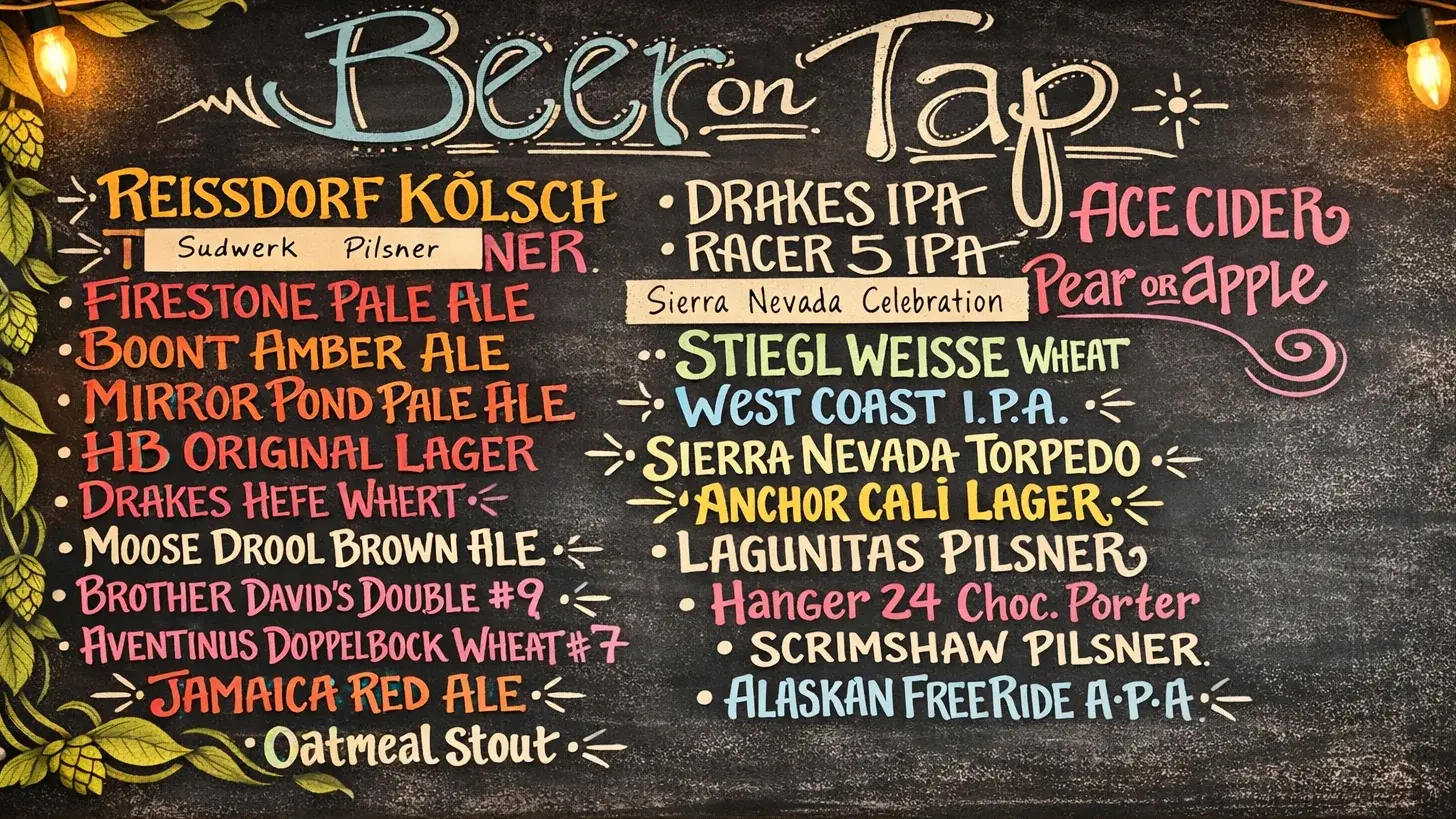 Beer on Tap
REISSDORF KÕLSCH
Sudwerk Pilsner
FIRESTONE PALE ALE
BOONT AMBER ALE
MIRROR POND PALE ALE
HB ORIGINAL LAGER
DRAKES HEFE WHERT
MOOSE DROOL BROWN ALE
BROTHER DAVID'S DOUBLE #9
AVENTINUS DOPPELBOCK WHEAT #7
JAMAICA RED ALE
Oatmeal Stout
DRAKES IPA
RACER 5 IPA
Sierra Nevada Celebration
STIEGL WEISSE WHEAT
WEST COAST I.P.A.
SIERRA NEVADA TORPEDO
ANCHOR CALi LAGER
LAGUNITAS PILSNER
Hanger 24 Choc. Porter
SCRIMSHAW PILSNER.
ALASKAN FREERIDE A.P.A.
ACE CIDER
Pear OR apple